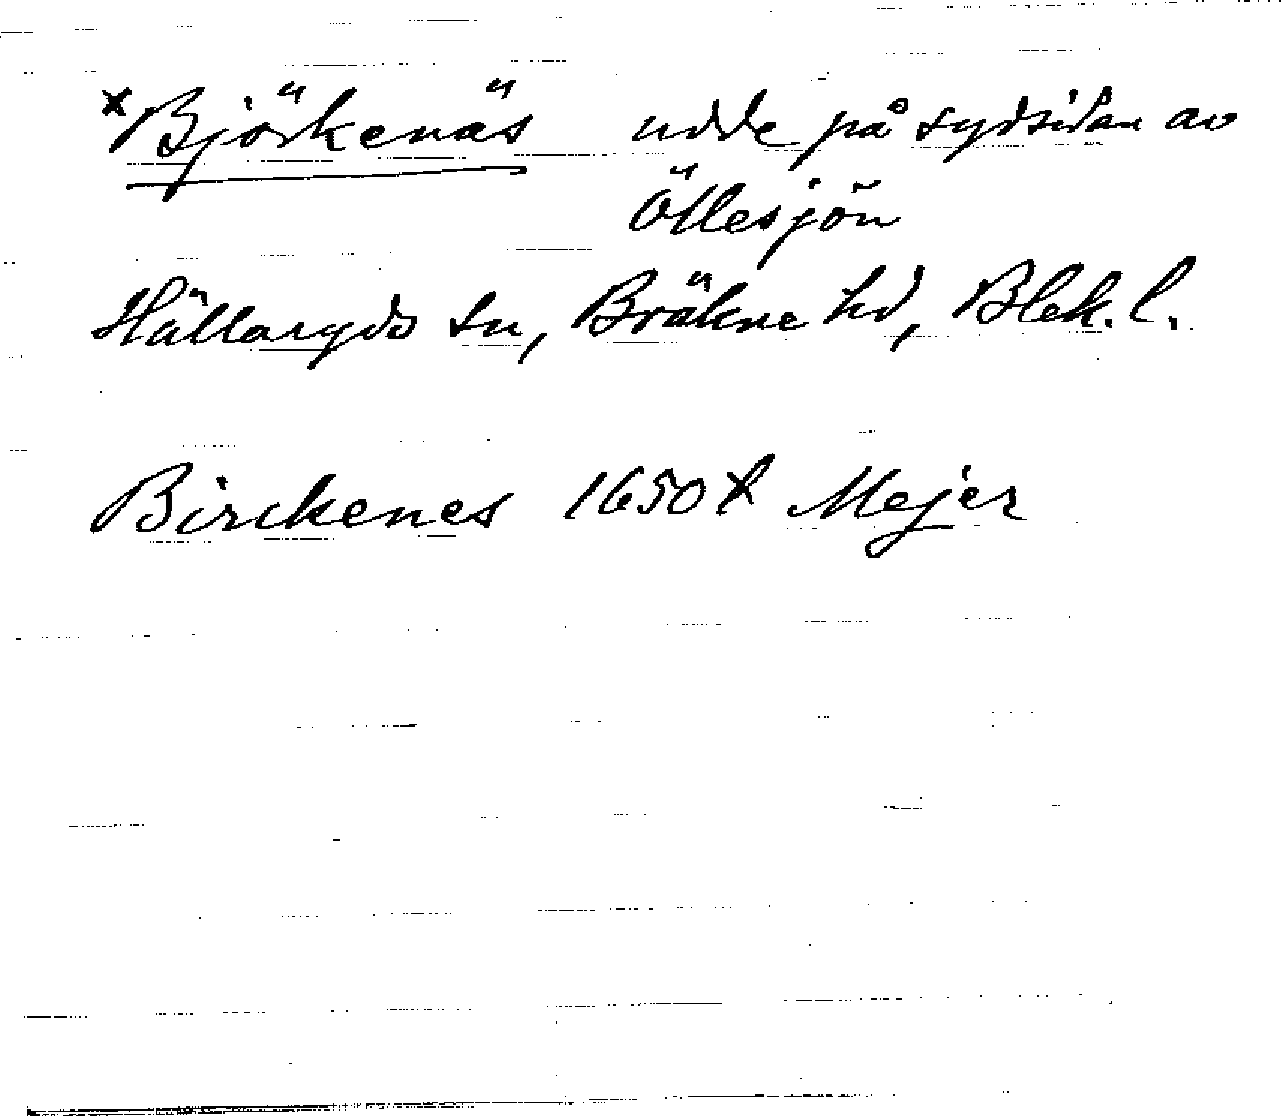 *Björkenäs udde på sydsidan av
Öllesjön
Hällaryds sn, Bräkne hd, Blek. l.
Birckenes 1650 t Mejer